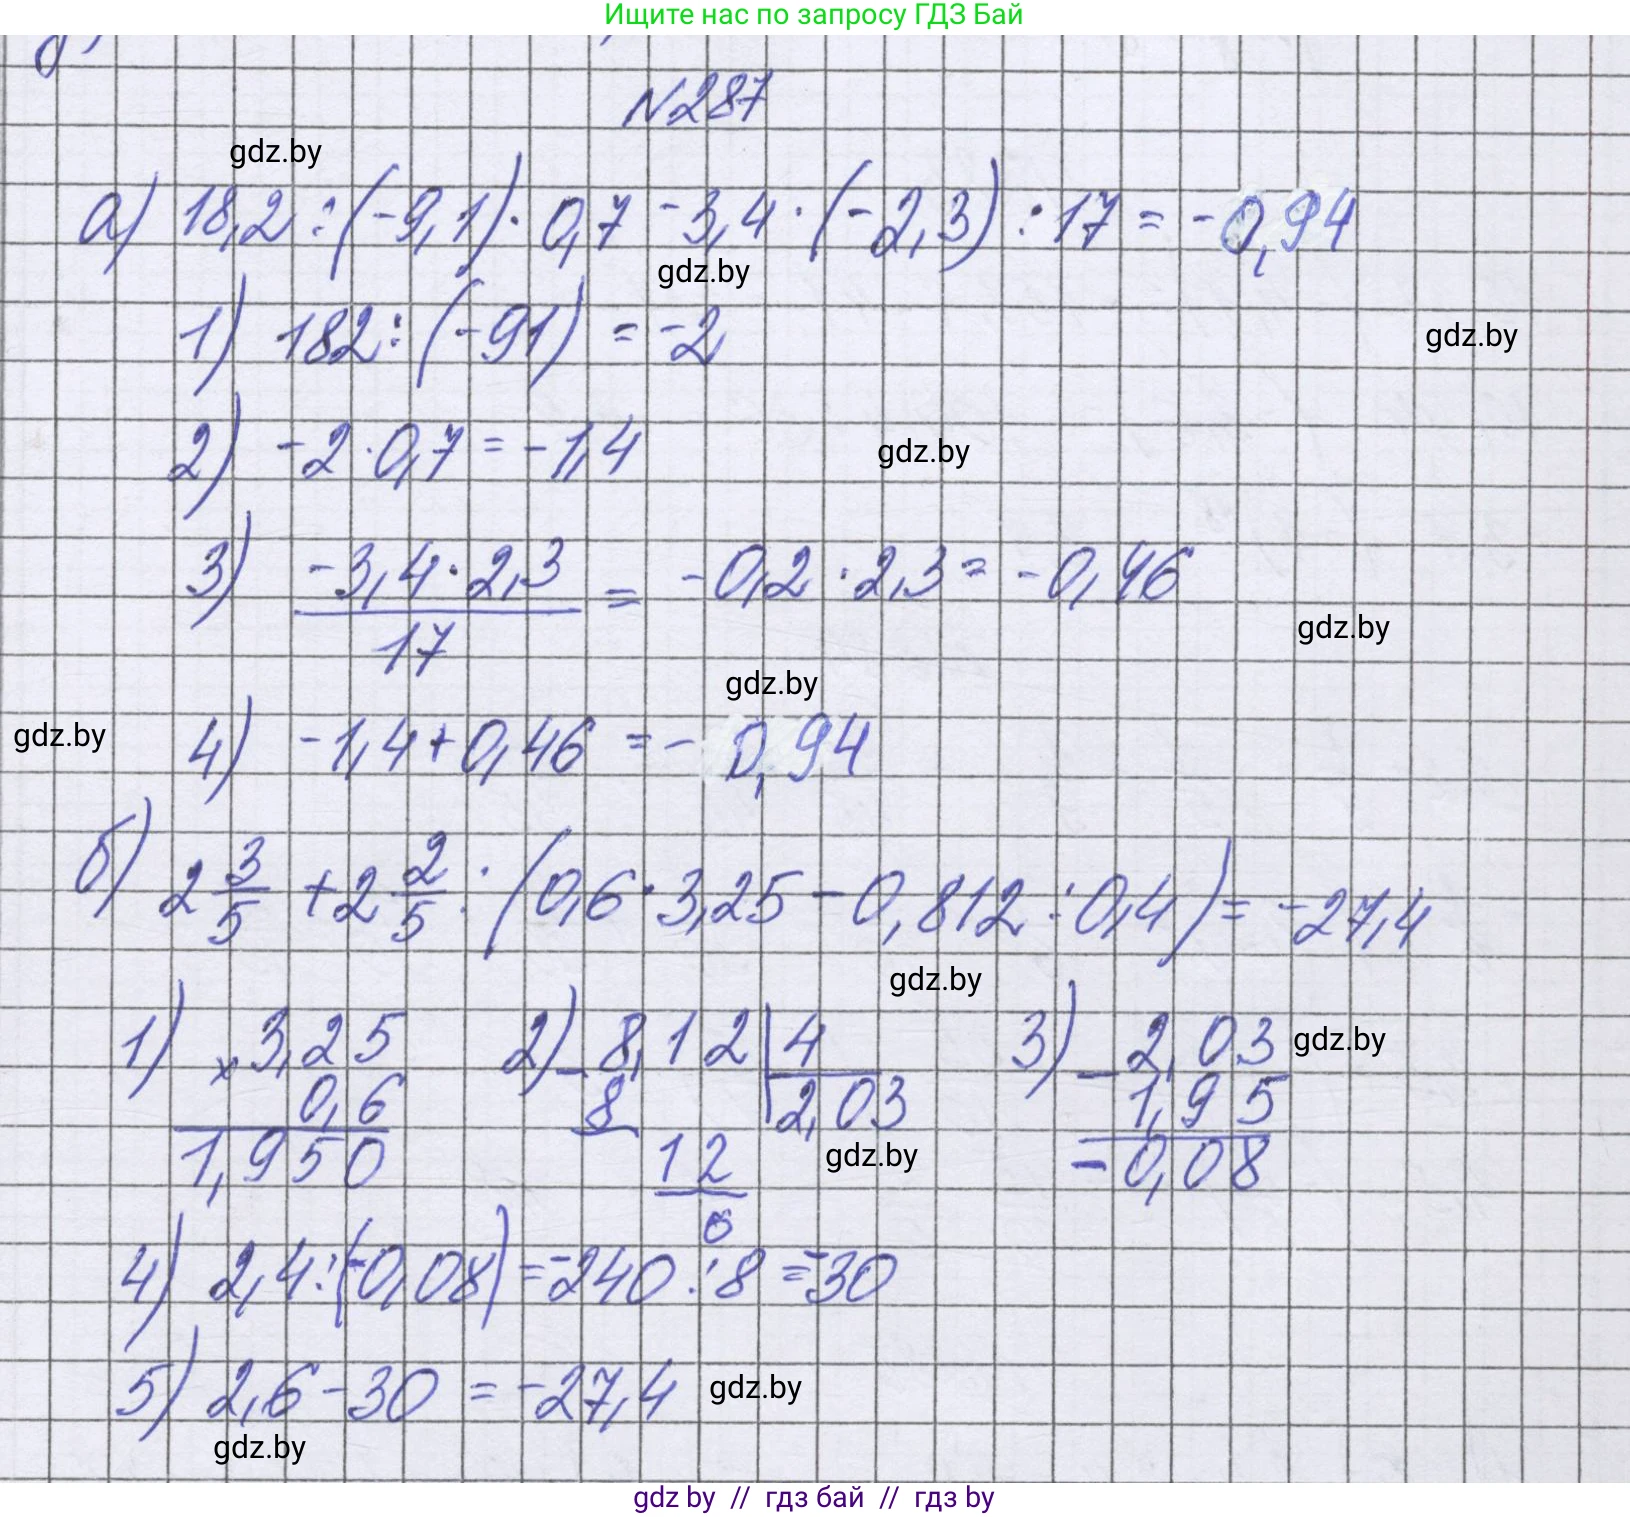 Ищите нас по запросу ГДЗ Бай
N287
gdz.by
а) 18,2 : (-9,1) · 0,7 - 3,4 · (-2,3) : 17 = -0,94
gdz.by
1) 182 : (-91) = -2
gdz.by
2) -2 · 0,7 = -1,4
gdz.by
3) -3,4 · 2,3 / 17 = -0,2 · 2,3 = -0,46
gdz.by
gdz.by
gdz.by
4) -1,4 + 0,46 = -0,94
б) 2 3/5 + 2 2/5 : (0,6 · 3,25 - 0,812 : 0,4) = -27,4
gdz.by
1) × 3,25
0,6
1,950
2) - 8,12 | 4
8 | 2,03
12
0
3) - 2,03
1,95
-0,08
gdz.by
gdz.by
4) 2,4 : (-0,08) = -240 : 8 = -30
5) 2,6 - 30 = -27,4
gdz.by
gdz.by
gdz by // гдз бай // гдз by